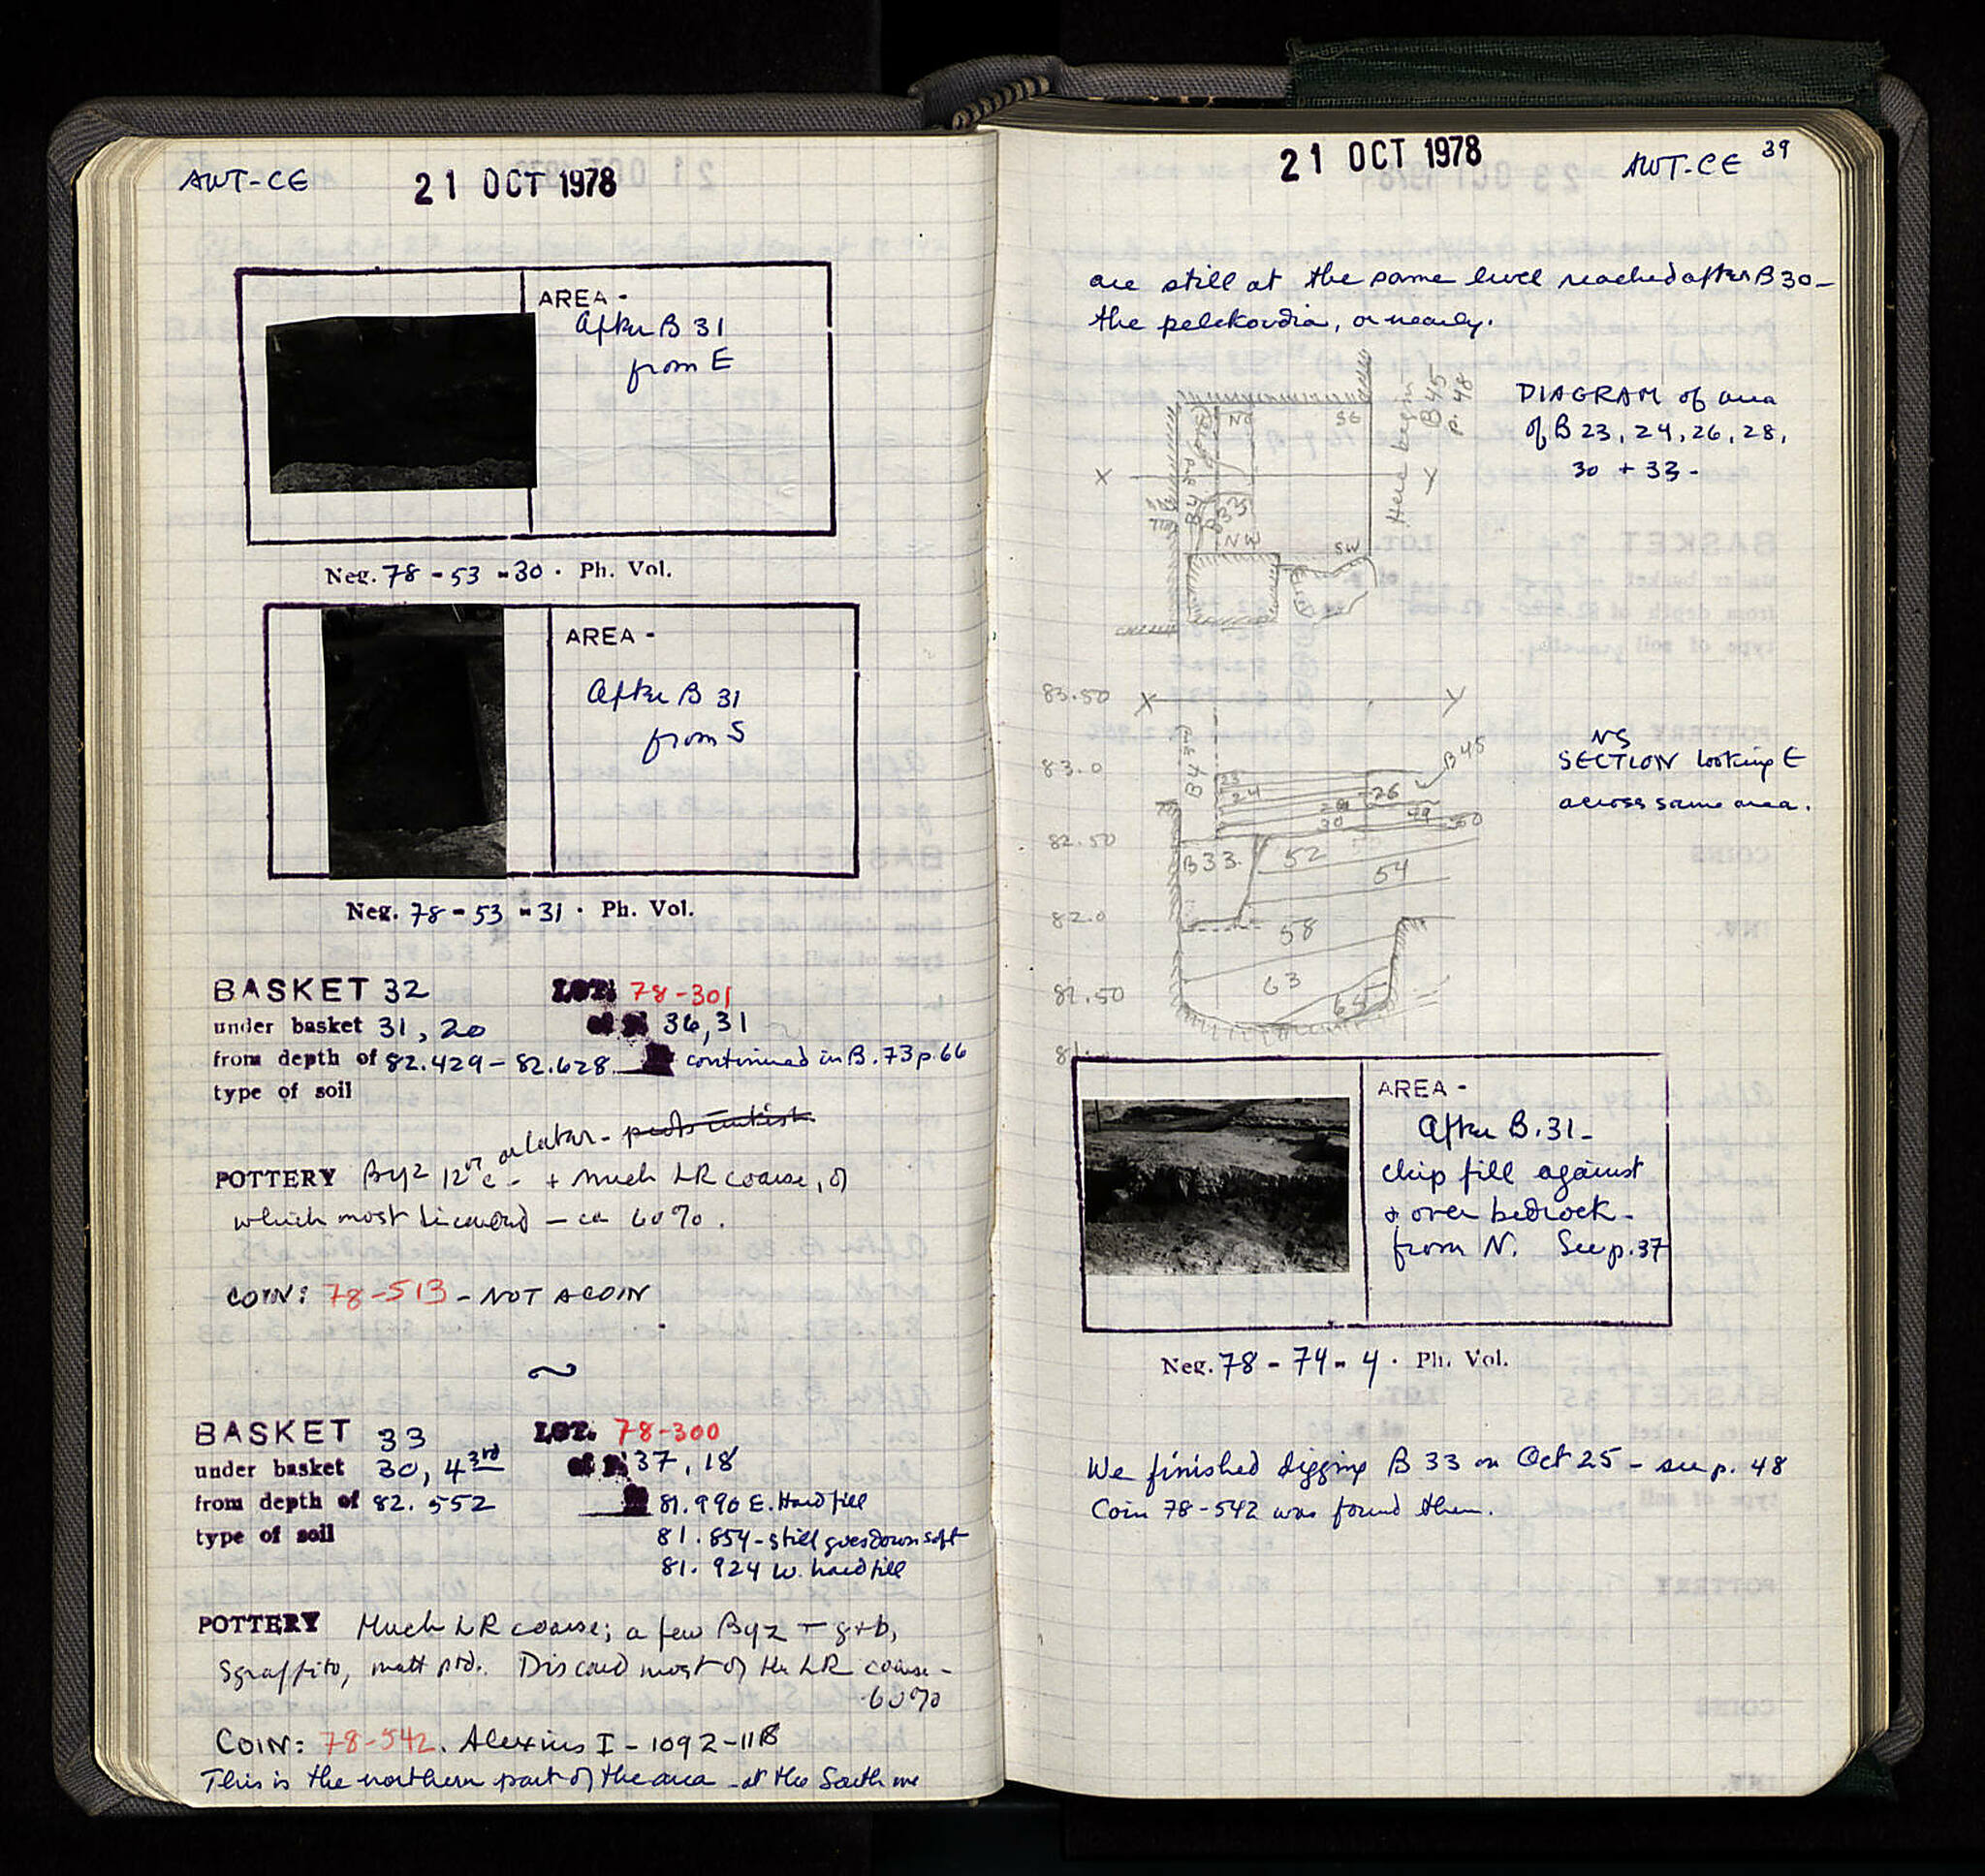 AWT-CE 21 OCT 1978
AREA -
After B 31
from E
Neg. 78 - 53 - 30 · Ph. Vol.
AREA -
After B 31
from S
Neg. 78 - 53 - 31 · Ph. Vol.
BASKET 32 LOT: 78-301
under basket 31, 20 of p. 36, 31
from depth of 82.429 - 82.628 continued in B. 73 p. 66
type of soil
or later -
POTTERY Byz 12th c - + much LR coarse, of
which most discarded - ca 60%.
COIN: 78-513 - NOT A COIN
~
BASKET 33 LOT. 78-300
under basket 30, 4 3rd of p. 37, 18
from depth of 82.552 81.990 E. Hard fill
type of soil 81.854 - still goes down soft
81.924 W. hard fill
POTTERY Much LR coarse; a few Byz - g+b,
Sgraffito, matt ptd. Discard most of the LR coarse -
60%
COIN: 78-542. Alexius I - 1092-1118
This is the northern part of the area - at the South we
21 OCT 1978 AWT-CE 39
are still at the same level reached after B 30 -
the pelekoudia, or nearly.
DIAGRAM of area
of B 23, 24, 26, 28,
30 + 33 -
NE SE
Here begin
B 45
p. 48
X Y
B 33
NW SW
83.50 X Y
NS
SECTION looking E
across same area.
83.0 B 45
23
24 26
28
30 49 50
82.50
B 33 52
54
82.0
58
81.50 63
65
81.
AREA -
After B. 31 -
chip fill against
& over bedrock -
from N. See p. 37
Neg. 78 - 74 - 4 · Ph. Vol.
We finished digging B 33 on Oct 25 - see p. 48
Coin 78-542 was found then.